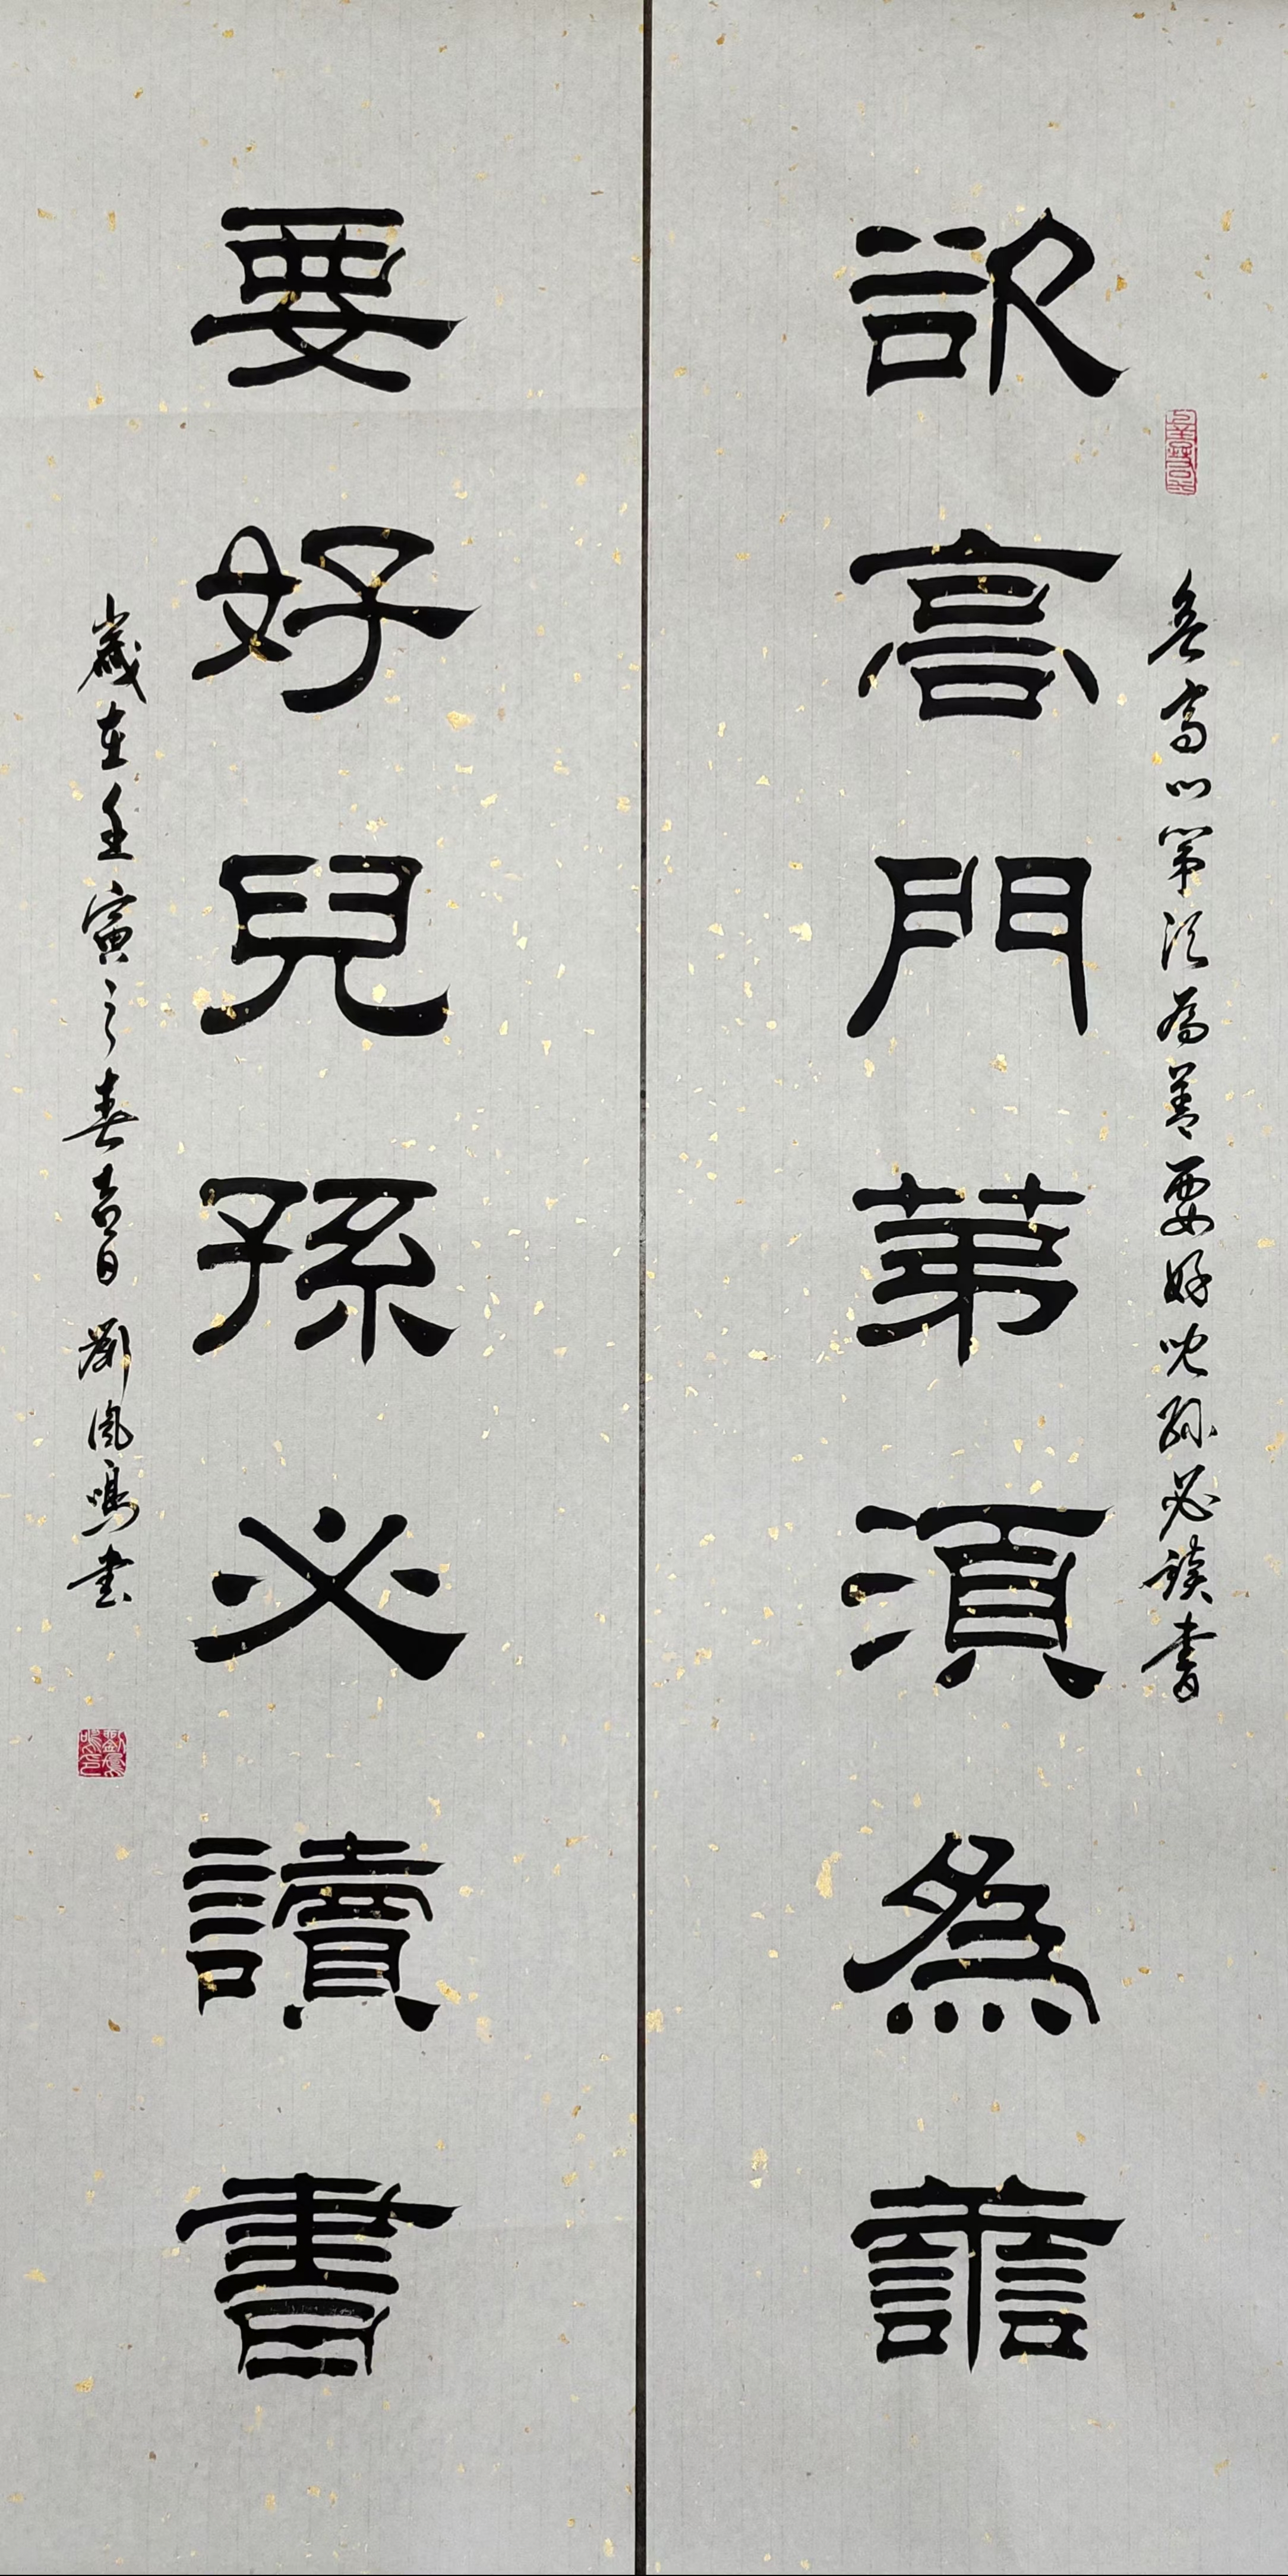 欲高門第須為善
欲高門第須為善要好兒孫必讀書
要好兒孫必讀書
歲在壬寅之春吉日 劉鳳鳴書